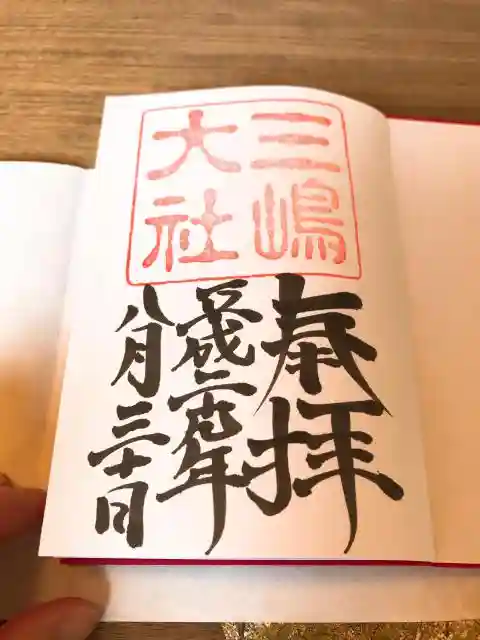 三嶋
大社
奉拝
平成二十九年
八月三十日